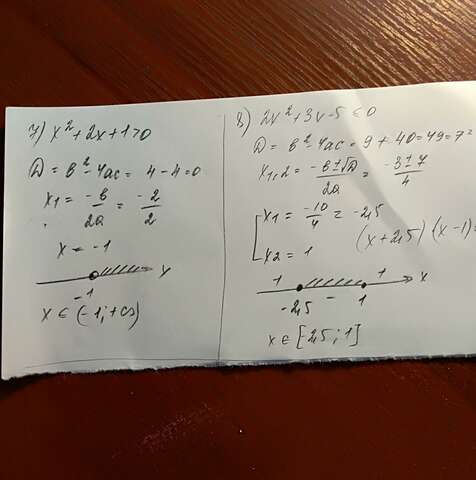 7) x² + 2x + 1 > 0
D = b² - 4ac = 4 - 4 = 0
x₁ = -b/2a = -2/2
x = -1
-1 x
x ∈ (-1; +∞)
8) 2x² + 3x - 5 ≤ 0
D = b² - 4ac = 9 + 40 = 49 = 7²
x₁,₂ = (-b ± √D)/2a = (-3 ± 7)/4
x₁ = -10/4 = -2,5
x₂ = 1 (x + 2,5) (x - 1) =
-2,5 - 1 x
x ∈ [-2,5; 1]